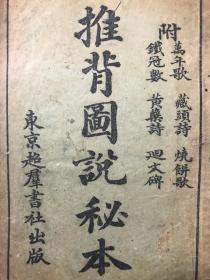 附
萬年歌 藏頭詩 燒餅歌
鐵冠數 黃蘗詩 迴文碑
推背圖說秘本
東京超羣書社出版